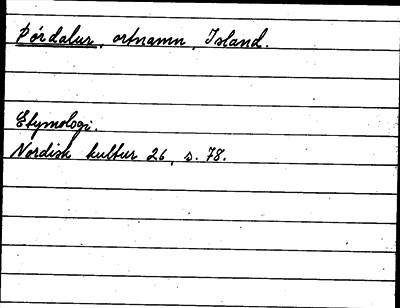 Þórdalur, ortnamn, Island.
Etymologi.
Nordisk kultur 26, s. 78.